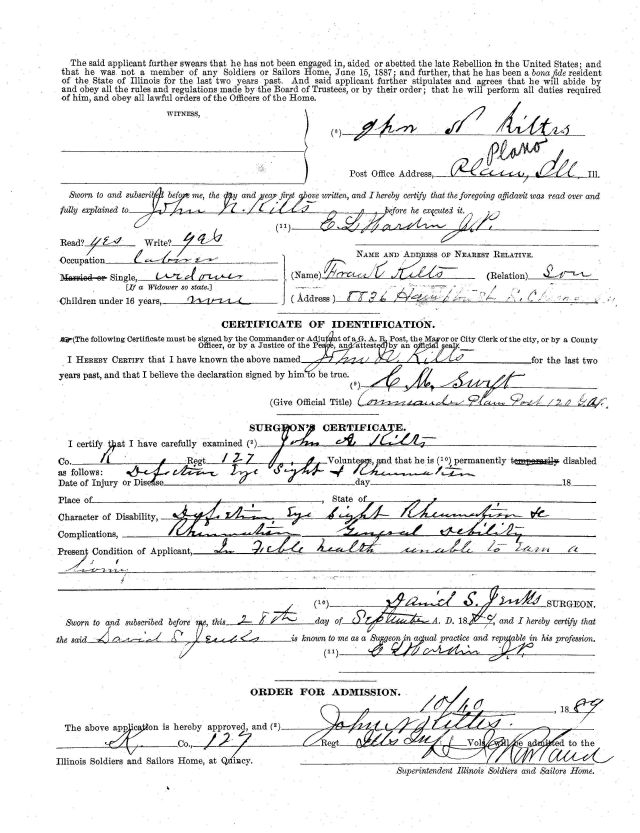 The said applicant further swears that he has not been engaged in, aided or abetted the late Rebellion in the United States; and
that he was not a member of any Soldiers or Sailors Home, June 15, 1887; and further, that he has been a bona fide resident
of the State of Illinois for the last two years past. And said applicant further stipulates and agrees that he will abide by
and obey all the rules and regulations made by the Board of Trustees, or by their order; that he will perform all duties required
of him, and obey all lawful orders of the Officers of the Home.
WITNESS,
(8) John N Kilts
Plano
Post Office Address, Plano, Ill. Ill.
Sworn to and subscribed before me, the day and year first above written, and I hereby certify that the foregoing affidavit was read over and
fully explained to John N. Kilts before he executed it.
(11) E L Hardin J.P.
Read? yes Write? yes
Occupation laborer
NAME AND ADDRESS OF NEAREST RELATIVE.
Married or Single, widower
(Name) Frank Kilts (Relation) Son
[If a Widower so state.]
Children under 16 years, none
(Address) 8836
CERTIFICATE OF IDENTIFICATION.
(The following Certificate must be signed by the Commander or Adjutant of a G. A. R. Post, the Mayor or City Clerk of the city, or by a County
Officer, or by a Justice of the Peace, and attested by an official seal.
I HEREBY CERTIFY that I have known the above named John N. Kilts for the last two
years past, and that I believe the declaration signed by him to be true.
(9) C M. Swift
(Give Official Title) Commander Plano Post 120 G.A.R.
SURGEON'S CERTIFICATE.
I certify that I have carefully examined (2) John N Kilts
Co. K Regt 127 Volunteers, and that he is (10) permanently temporarily disabled
as follows: Defection Eye Sight & Rheumatism
Date of Injury or Disease day 18
Place of , State of
Character of Disability, Defection Eye Sight Rheumatism &c
Complications, Rheumatism General debility
Present Condition of Applicant, In Feble health unable to earn a
living
(10) David S. Jenks SURGEON.
Sworn to and subscribed before me, this 28th day of September A. D. 1889, and I hereby certify that
the said David S Jenks is known to me as a Surgeon in actual practice and reputable in his profession.
(11) E L Hardin J.P.
ORDER FOR ADMISSION.
10/10 1889
The above application is hereby approved, and (2) John N Kilts.
K Co., 127 Regt Ills Inf Vols will be admitted to the
Illinois Soldiers and Sailors Home, at Quincy.
Superintendent Illinois Soldiers and Sailors Home.